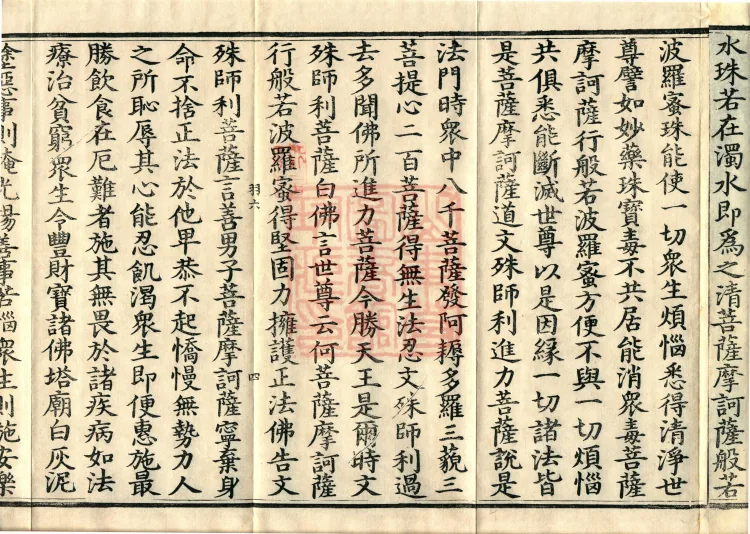 水珠若在濁水即爲之清菩薩摩訶薩般若
波羅蜜珠能使一切衆生煩惱悉得清淨世
尊譬如妙藥珠寶毒不共居能消衆毒菩薩
摩訶薩行般若波羅蜜方便不與一切煩惱
共俱悉能斷滅世尊以是因緣一切諸法皆
是菩薩摩訶薩道文殊師利進力菩薩說是
法門時衆中八千菩薩發阿耨多羅三藐三
菩提心二百菩薩得無生法忍文殊師利過
去多聞佛所進力菩薩今勝天王是爾時文
殊師利菩薩白佛言世尊云何菩薩摩訶薩
行般若波羅蜜得堅固力擁護正法佛告文
羽六 四
殊師利菩薩言善男子菩薩摩訶薩寧棄身
命不捨正法於他卑恭不起憍慢無勢力人
之所恥辱其心能忍飢渴衆生即便惠施最
勝飲食在厄難者施其無畏於諸疾病如法
療治貧窮衆生令豐財寶諸佛塔廟白灰泥
塗惡事則掩光揚善事苦惱衆生則施安樂